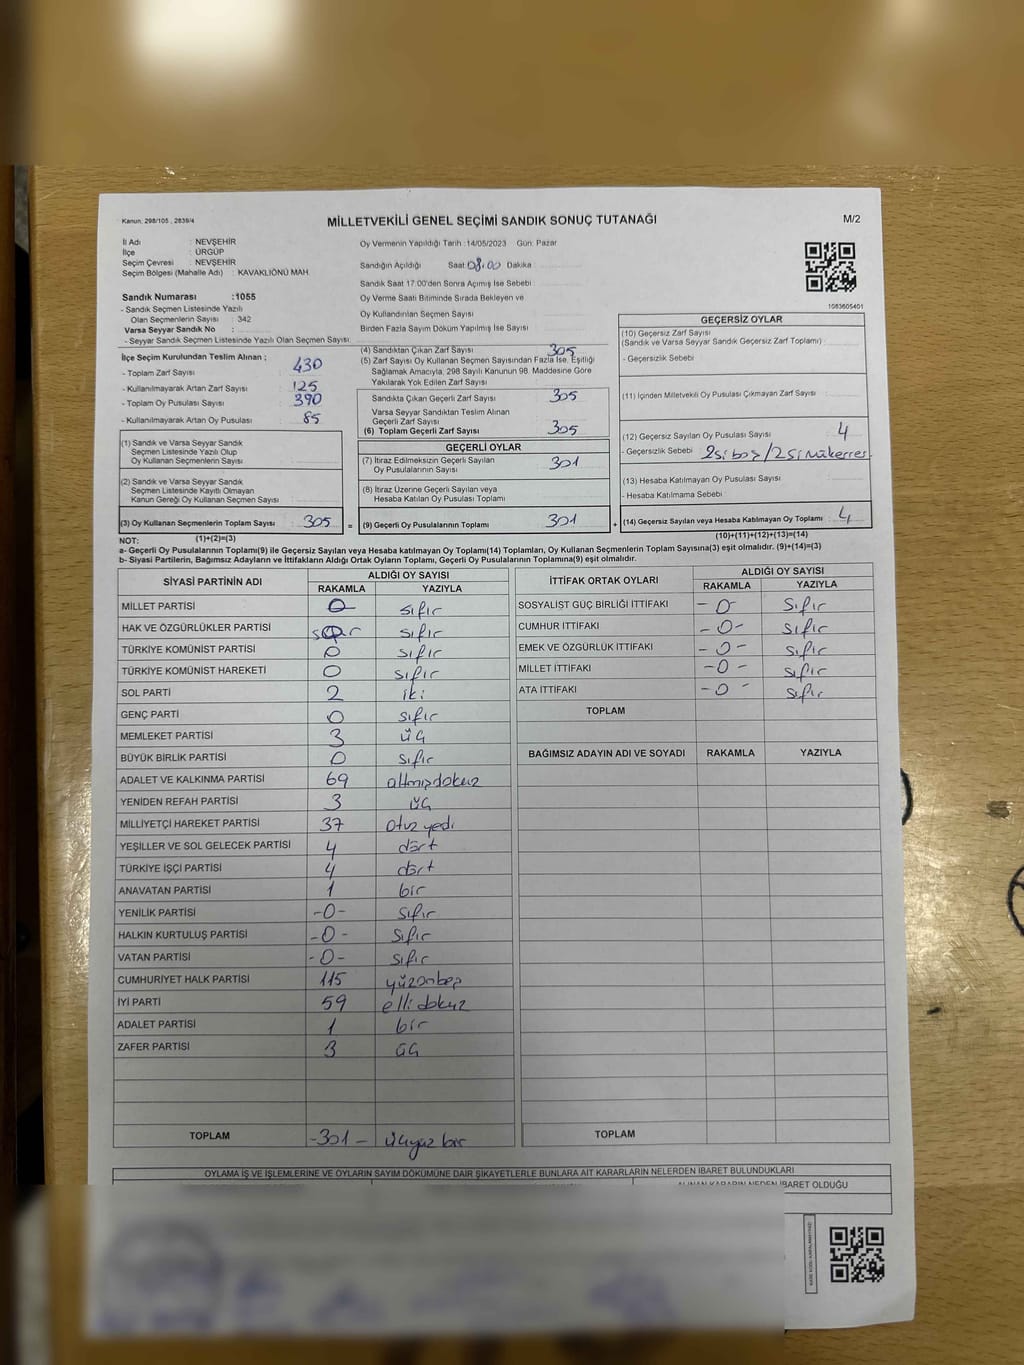 Kanun: 298/105 , 2839/4
MİLLETVEKİLİ GENEL SEÇİMİ SANDIK SONUÇ TUTANAĞI
M/2
İl Adı : NEVŞEHİR
İlçe : ÜRGÜP
Seçim Çevresi : NEVŞEHİR
Seçim Bölgesi (Mahalle Adı) : KAVAKLIÖNÜ MAH
Sandık Numarası :1055
- Sandık Seçmen Listesinde Yazılı
Olan Seçmenlerin Sayısı : 342
Varsa Seyyar Sandık No :
- Seyyar Sandık Seçmen Listesinde Yazılı Olan Seçmen Sayısı:
Oy Vermenin Yapıldığı Tarih :14/05/2023 Gün: Pazar
Sandığın Açıldığı Saat: 08.00 Dakika:
Sandık Saat 17:00'den Sonra Açımış İse Sebebi
Oy Verme Saati Bitiminde Sırada Bekleyen ve
Oy Kullandırılan Seçmen Sayısı
Birden Fazla Sayım Döküm Yapılmış İse Sayısı
1083605401
İlçe Seçim Kurulundan Teslim Alınan ;
- Toplam Zarf Sayısı : 430
- Kullanılmayarak Artan Zarf Sayısı : 125
- Toplam Oy Pusulası Sayısı : 390
- Kullanılmayarak Artan Oy Pusulası : 85
(1) Sandık ve Varsa Seyyar Sandık
Seçmen Listesinde Yazılı Olup
Oy Kullanan Seçmenlerin Sayısı
(2) Sandık ve Varsa Seyyar Sandık
Seçmen Listesinde Kayıtlı Olmayan
Kanun Gereği Oy Kullanan Seçmen Sayısı
(3) Oy Kullanan Seçmenlerin Toplam Sayısı : 305 =
(1)+(2)=(3)
(4) Sandıktan Çıkan Zarf Sayısı : 305
(5) Zarf Sayısı Oy Kullanan Seçmen Sayısından Fazla İse, Eşitliği
Sağlamak Amacıyla, 298 Sayılı Kanunun 98. Maddesine Göre
Yakılarak Yok Edilen Zarf Sayısı
Sandıkta Çıkan Geçerli Zarf Sayısı : 305
Varsa Seyyar Sandıktan Teslim Alınan
Geçerli Zarf Sayısı
(6) Toplam Geçerli Zarf Sayısı : 305
GEÇERLİ OYLAR
(7) İtiraz Edilmeksizin Geçerli Sayılan
Oy Pusulalarının Sayısı : 301
(8) İtiraz Üzerine Geçerli Sayılan veya
Hesaba Katılan Oy Pusulaları Toplamı
(9) Geçerli Oy Pusulalarının Toplamı : 301 +
GEÇERSİZ OYLAR
(10) Geçersiz Zarf Sayısı
(Sandık ve Varsa Seyyar Sandık Geçersiz Zarf Toplamı) :
- Geçersizlik Sebebi :
(11) İçinden Milletvekili Oy Pusulası Çıkmayan Zarf Sayısı :
(12) Geçersiz Sayılan Oy Pusulası Sayısı : 4
- Geçersizlik Sebebi : 2si boş / 2si mükerrer
(13) Hesaba Katılmayan Oy Pusulası Sayısı :
- Hesaba Katılmama Sebebi
(14) Geçersiz Sayılan veya Hesaba Katılmayan Oy Toplamı : 4
(10)+(11)+(12)+(13)=(14)
NOT:
a- Geçerli Oy Pusulalarının Toplamı(9) ile Geçersiz Sayılan veya Hesaba katılmayan Oy Toplamı(14) Toplamları, Oy Kullanan Seçmenlerin Toplam Sayısına(3) eşit olmalıdır. (9)+(14)=(3)
b- Siyasi Partilerin, Bağımsız Adayların ve İttifakların Aldığı Ortak Oyların Toplamı, Geçerli Oy Pusulalarının Toplamına(9) eşit olmalıdır.
SİYASİ PARTİNİN ADI ALDIĞI OY SAYISI
RAKAMLA YAZIYLA
MİLLET PARTİSİ 0 sıfır
HAK VE ÖZGÜRLÜKLER PARTİSİ 0 sıfır
TÜRKİYE KOMÜNİST PARTİSİ 0 sıfır
TÜRKİYE KOMÜNİST HAREKETİ 0 sıfır
SOL PARTİ 2 iki
GENÇ PARTİ 0 sıfır
MEMLEKET PARTİSİ 3 üç
BÜYÜK BİRLİK PARTİSİ 0 sıfır
ADALET VE KALKINMA PARTİSİ 69 altmışdokuz
YENİDEN REFAH PARTİSİ 3 üç
MİLLİYETÇİ HAREKET PARTİSİ 37 otuz yedi
YEŞİLLER VE SOL GELECEK PARTİSİ 4 dört
TÜRKİYE İŞÇİ PARTİSİ 4 dört
ANAVATAN PARTİSİ 1 bir
YENİLİK PARTİSİ -0- sıfır
HALKIN KURTULUŞ PARTİSİ -0- sıfır
VATAN PARTİSİ -0- sıfır
CUMHURİYET HALK PARTİSİ 115 yüzonbeş
İYİ PARTİ 59 elli dokuz
ADALET PARTİSİ 1 bir
ZAFER PARTİSİ 3 üç
TOPLAM -301- üçyüz bir
İTTİFAK ORTAK OYLARI ALDIĞI OY SAYISI
RAKAMLA YAZIYLA
SOSYALİST GÜÇ BİRLİĞİ İTTİFAKI -0- sıfır
CUMHUR İTTİFAKI -0- sıfır
EMEK VE ÖZGÜRLÜK İTTİFAKI -0- sıfır
MİLLET İTTİFAKI -0- sıfır
ATA İTTİFAKI -0- sıfır
TOPLAM
BAĞIMSIZ ADAYIN ADI VE SOYADI RAKAMLA YAZIYLA
TOPLAM
OYLAMA İŞ VE İŞLEMLERİNE VE OYLARIN SAYIM DÖKÜMÜNE DAİR ŞİKAYETLERLE BUNLARA AİT KARARLARIN NELERDEN İBARET BULUNDUKLARI
ALINAN KARARIN NEDEN İBARET OLDUĞU